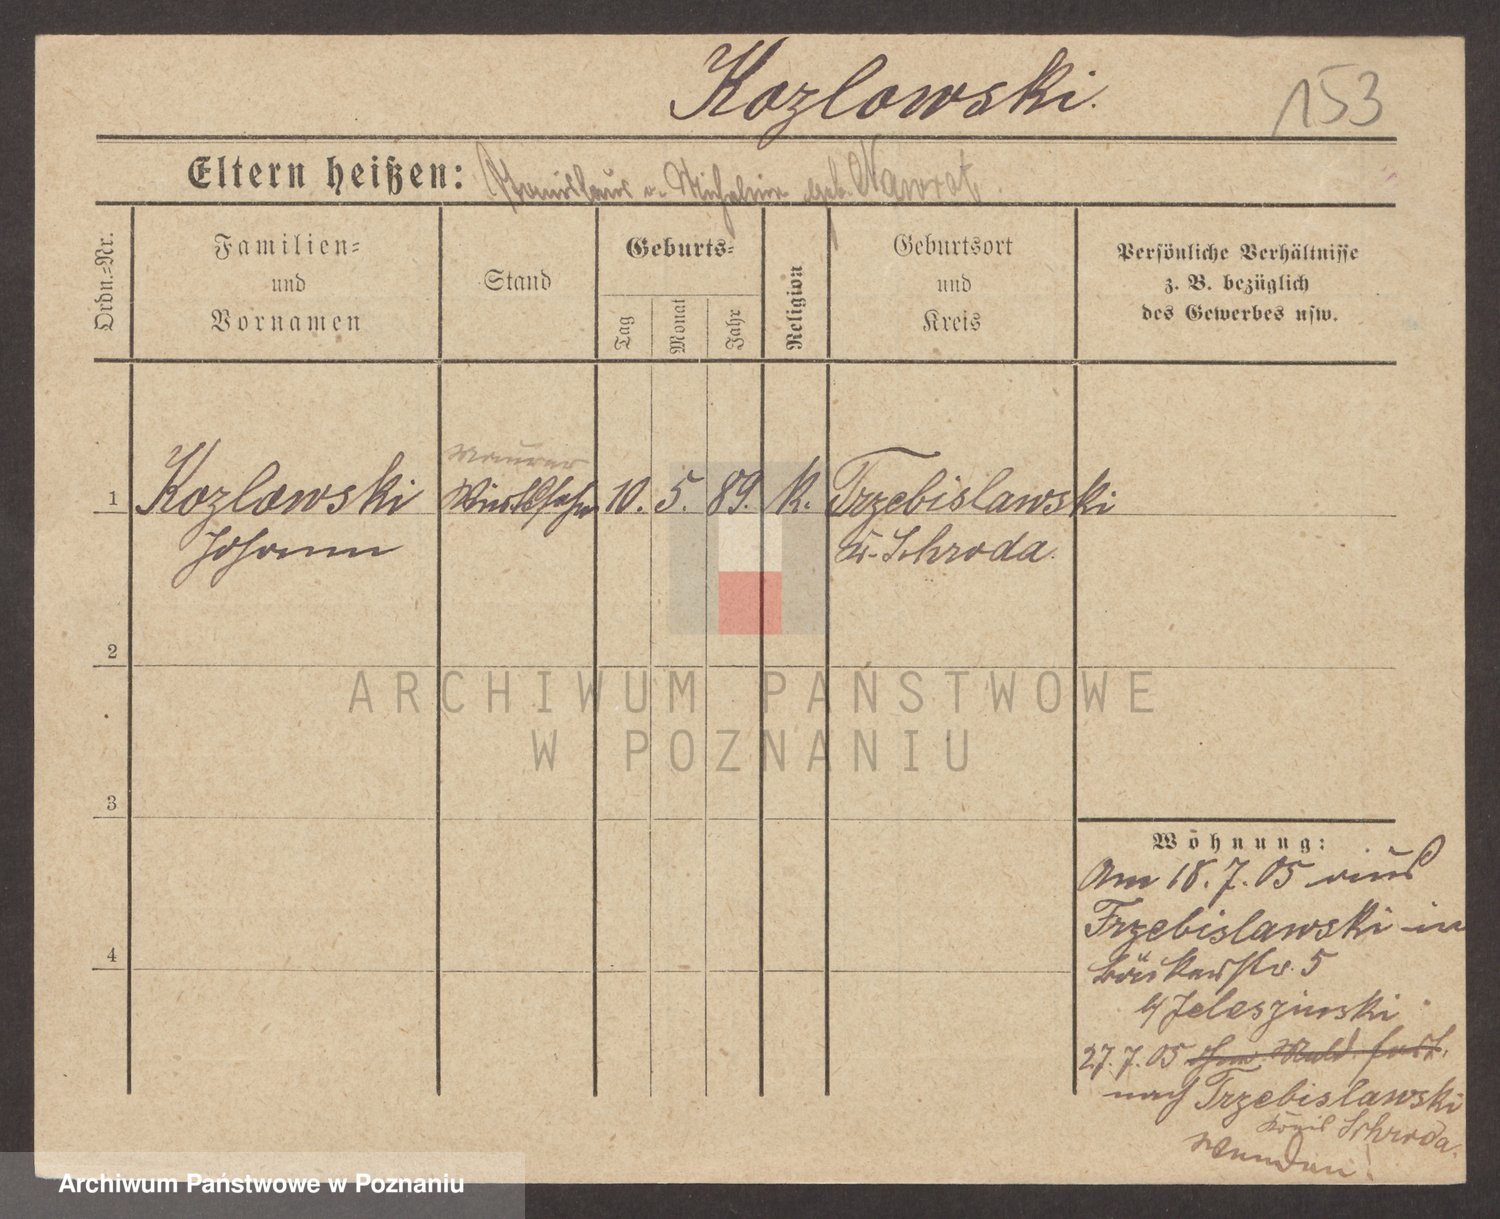 Kozlowski.
153
Eltern heißen: Stanislaus u. Michalina geb. Nawrot
Ordn.=Nr.
Familien=
und
Vornamen
Stand
Geburts=
Tag
Monat
Jahr
Religion
Geburtsort
und
Kreis
Persönliche Verhältnisse
z. B. bezüglich
des Gewerbes usw.
Maurer
1 Kozlowski 10. 5. 89. K. Trzebislawski
Johann Kr. Schroda.
2
3
4
ARCHIWUM PAŃSTWOWE
W POZNANIU
Wohnung:
Am 18. 7. 05 aus
Trzebislawski in
5
b/ Jeleszinski
27. 7. 05 ohne Meld. fort.
nach Trzebislawski
Kreis Schroda.
Archiwum Państwowe w Poznaniu